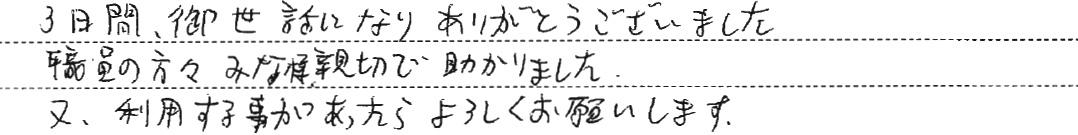 3日間、御世話になりありがとうございました
職員の方々みな様親切で助かりました.
又、利用する事があったらよろしくお願いします.